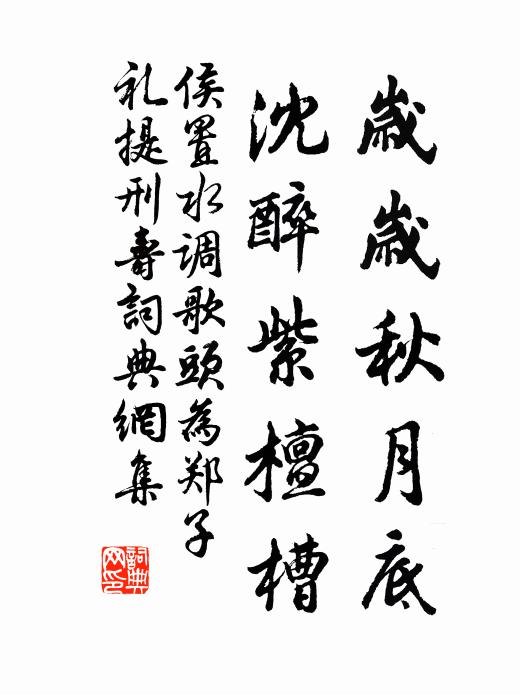 歲歲秋月底
沈醉紫檀槽
侯置水调歌頭為郑子
礼提刑壽詞典網集
詞典网印